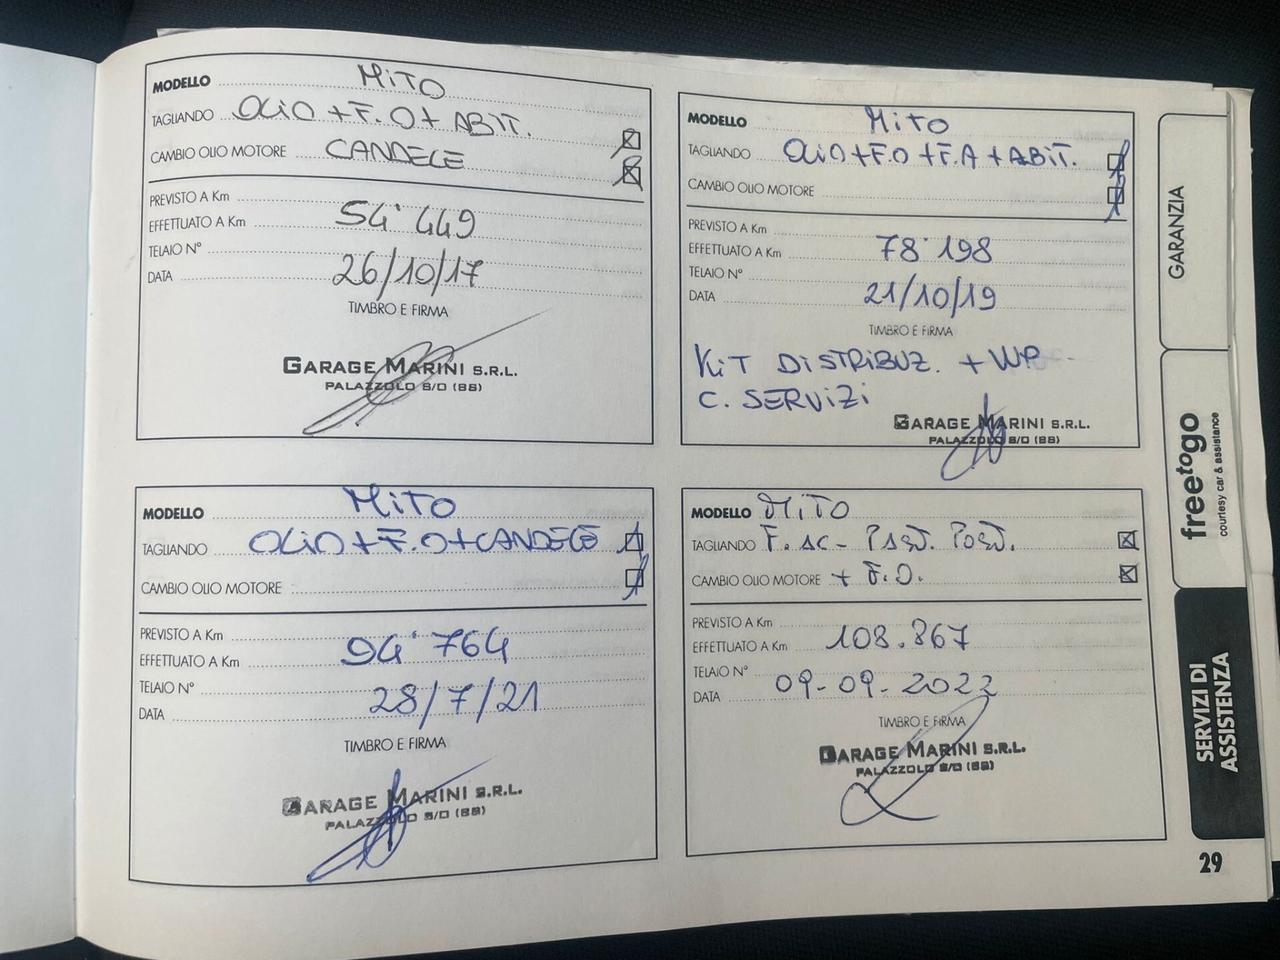 MODELLO MiTO
TAGLIANDO OLiO + F.O + ABIT.
CAMBIO OLIO MOTORE CANDELE
PREVISTO A Km
EFFETTUATO A Km 54'449
TELAIO N°
DATA 26/10/17
TIMBRO E FIRMA
GARAGE MARINI S.R.L.
PALAZZOLO S/O (BS)
MODELLO MiTO
TAGLIANDO OLiO+F.O+F.A+ABiT.
CAMBIO OLIO MOTORE
PREVISTO A Km
EFFETTUATO A Km 78'198
TELAIO N°
DATA 21/10/19
TIMBRO E FIRMA
KiT DiSTRiBUZ. + WP
C. SERViZi
GARAGE MARINI S.R.L.
PALAZZOLO S/O (BS)
MODELLO MiTO
TAGLIANDO OLiO+F.O+CANDELE
CAMBIO OLIO MOTORE
PREVISTO A Km
EFFETTUATO A Km 94'764
TELAIO N°
DATA 28/7/21
TIMBRO E FIRMA
GARAGE MARINI S.R.L.
PALAZZOLO S/O (BS)
MODELLO MiTO
TAGLIANDO F. AC- PAST. POST.
CAMBIO OLIO MOTORE + F.O.
PREVISTO A Km
EFFETTUATO A Km 108.867
TELAIO N°
DATA 09-09-2022
TIMBRO E FIRMA
GARAGE MARINI S.R.L.
PALAZZOLO S/O (BS)
GARANZIA
freetogo
courtesy car & assistance
SERVIZI DI
ASSISTENZA
29